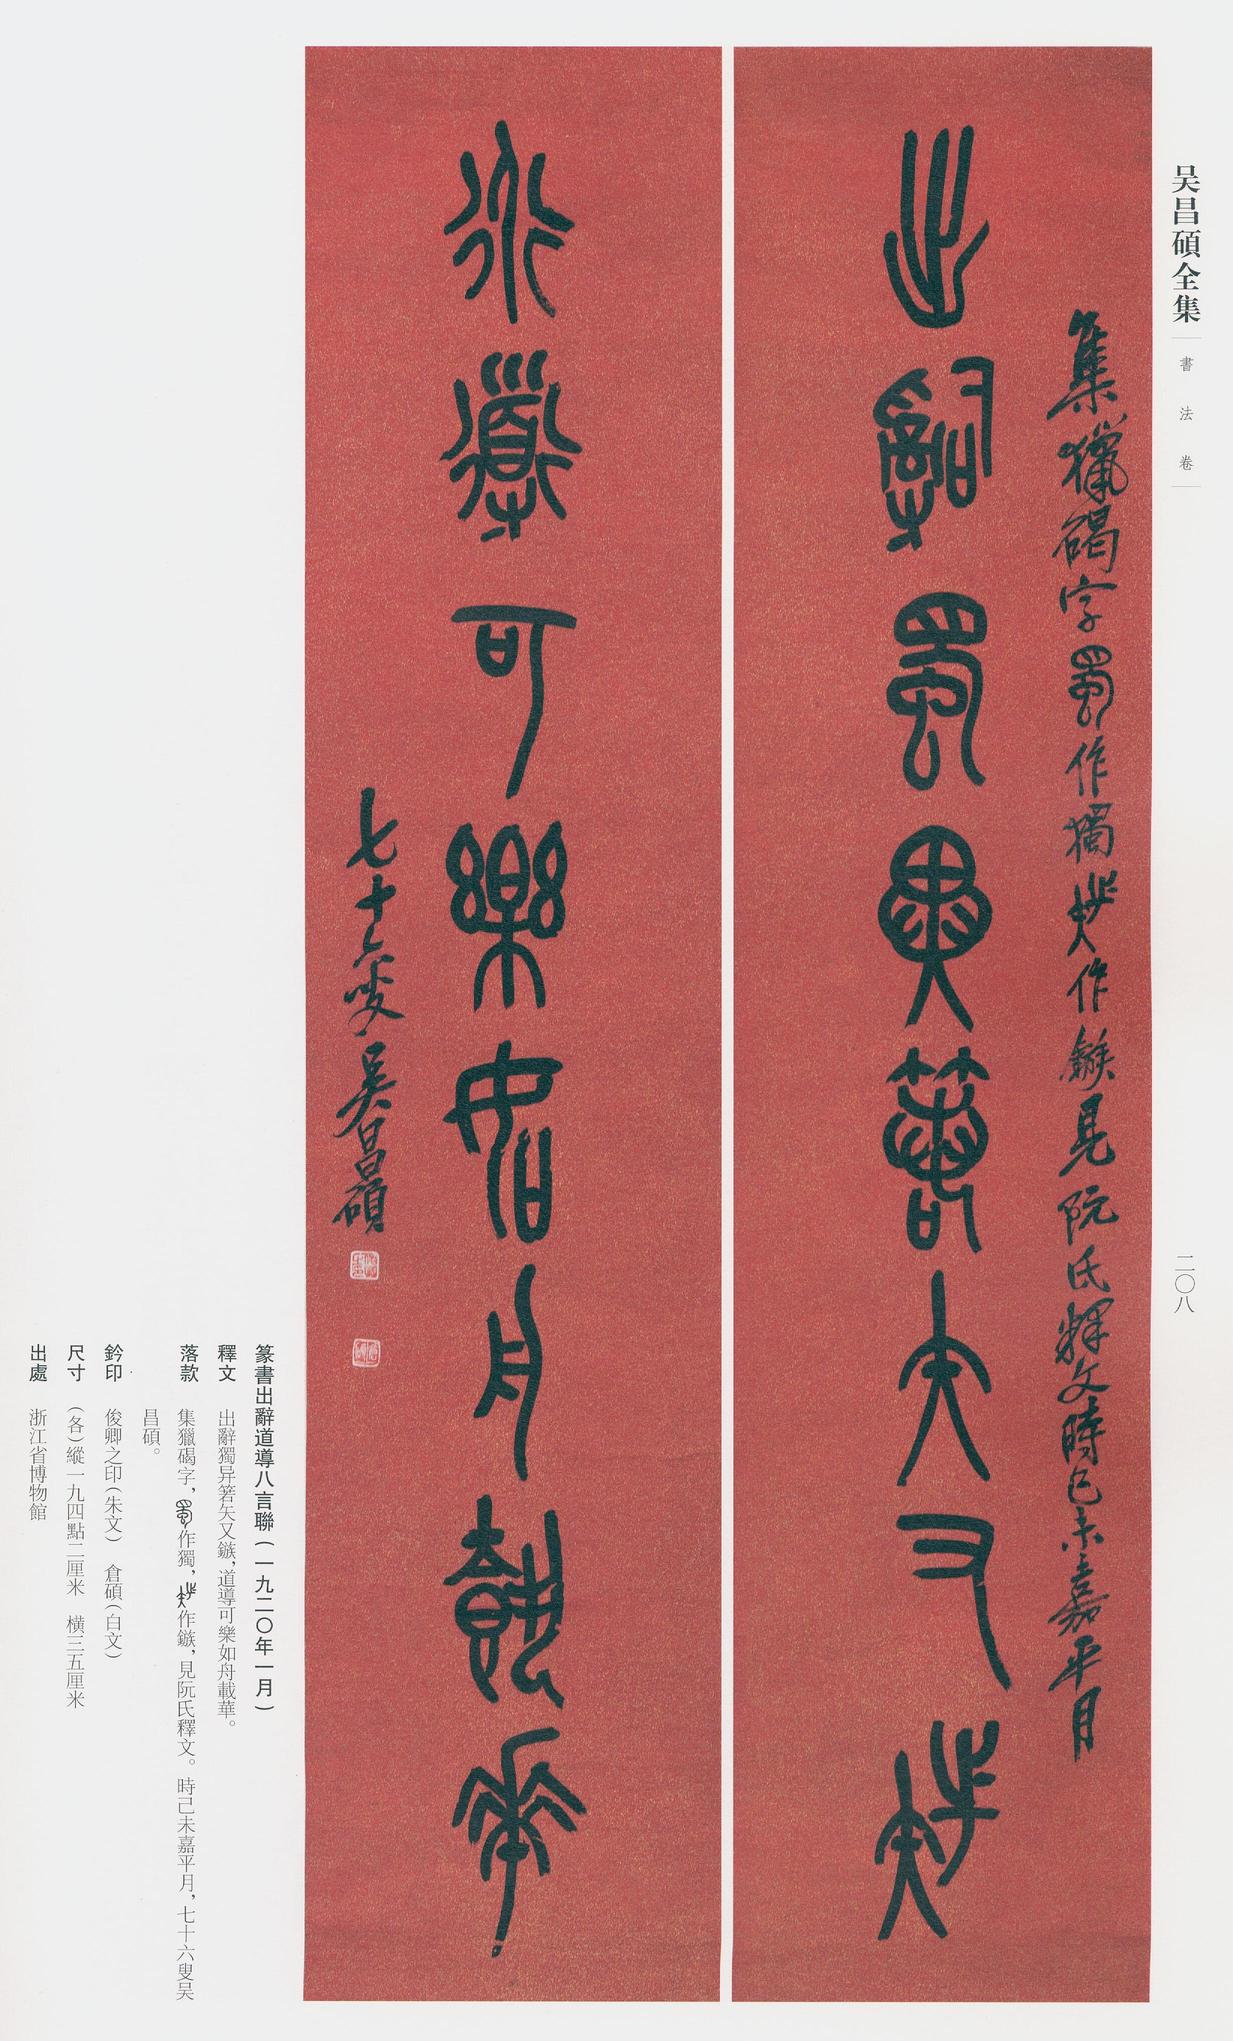 吴昌碩全集
書法卷
二〇八
集獵碣字蜀作獨作鏃見阮氏釋文時己未嘉平月
出辭蜀異箬矢又
道可樂如舟載華
七十六叟吴昌碩
篆書出辭道導八言聯（一九二〇年一月）
釋文 出辭獨异箬矢又鏃，道導可樂如舟載華。
落款 集獵碣字，蜀作獨，作鏃，見阮氏釋文。時己未嘉平月，七十六叟吴
昌碩。
鈐印 俊卿之印（朱文） 倉碩（白文）
尺寸 （各）縱一九四點二厘米 橫三五厘米
出處 浙江省博物館